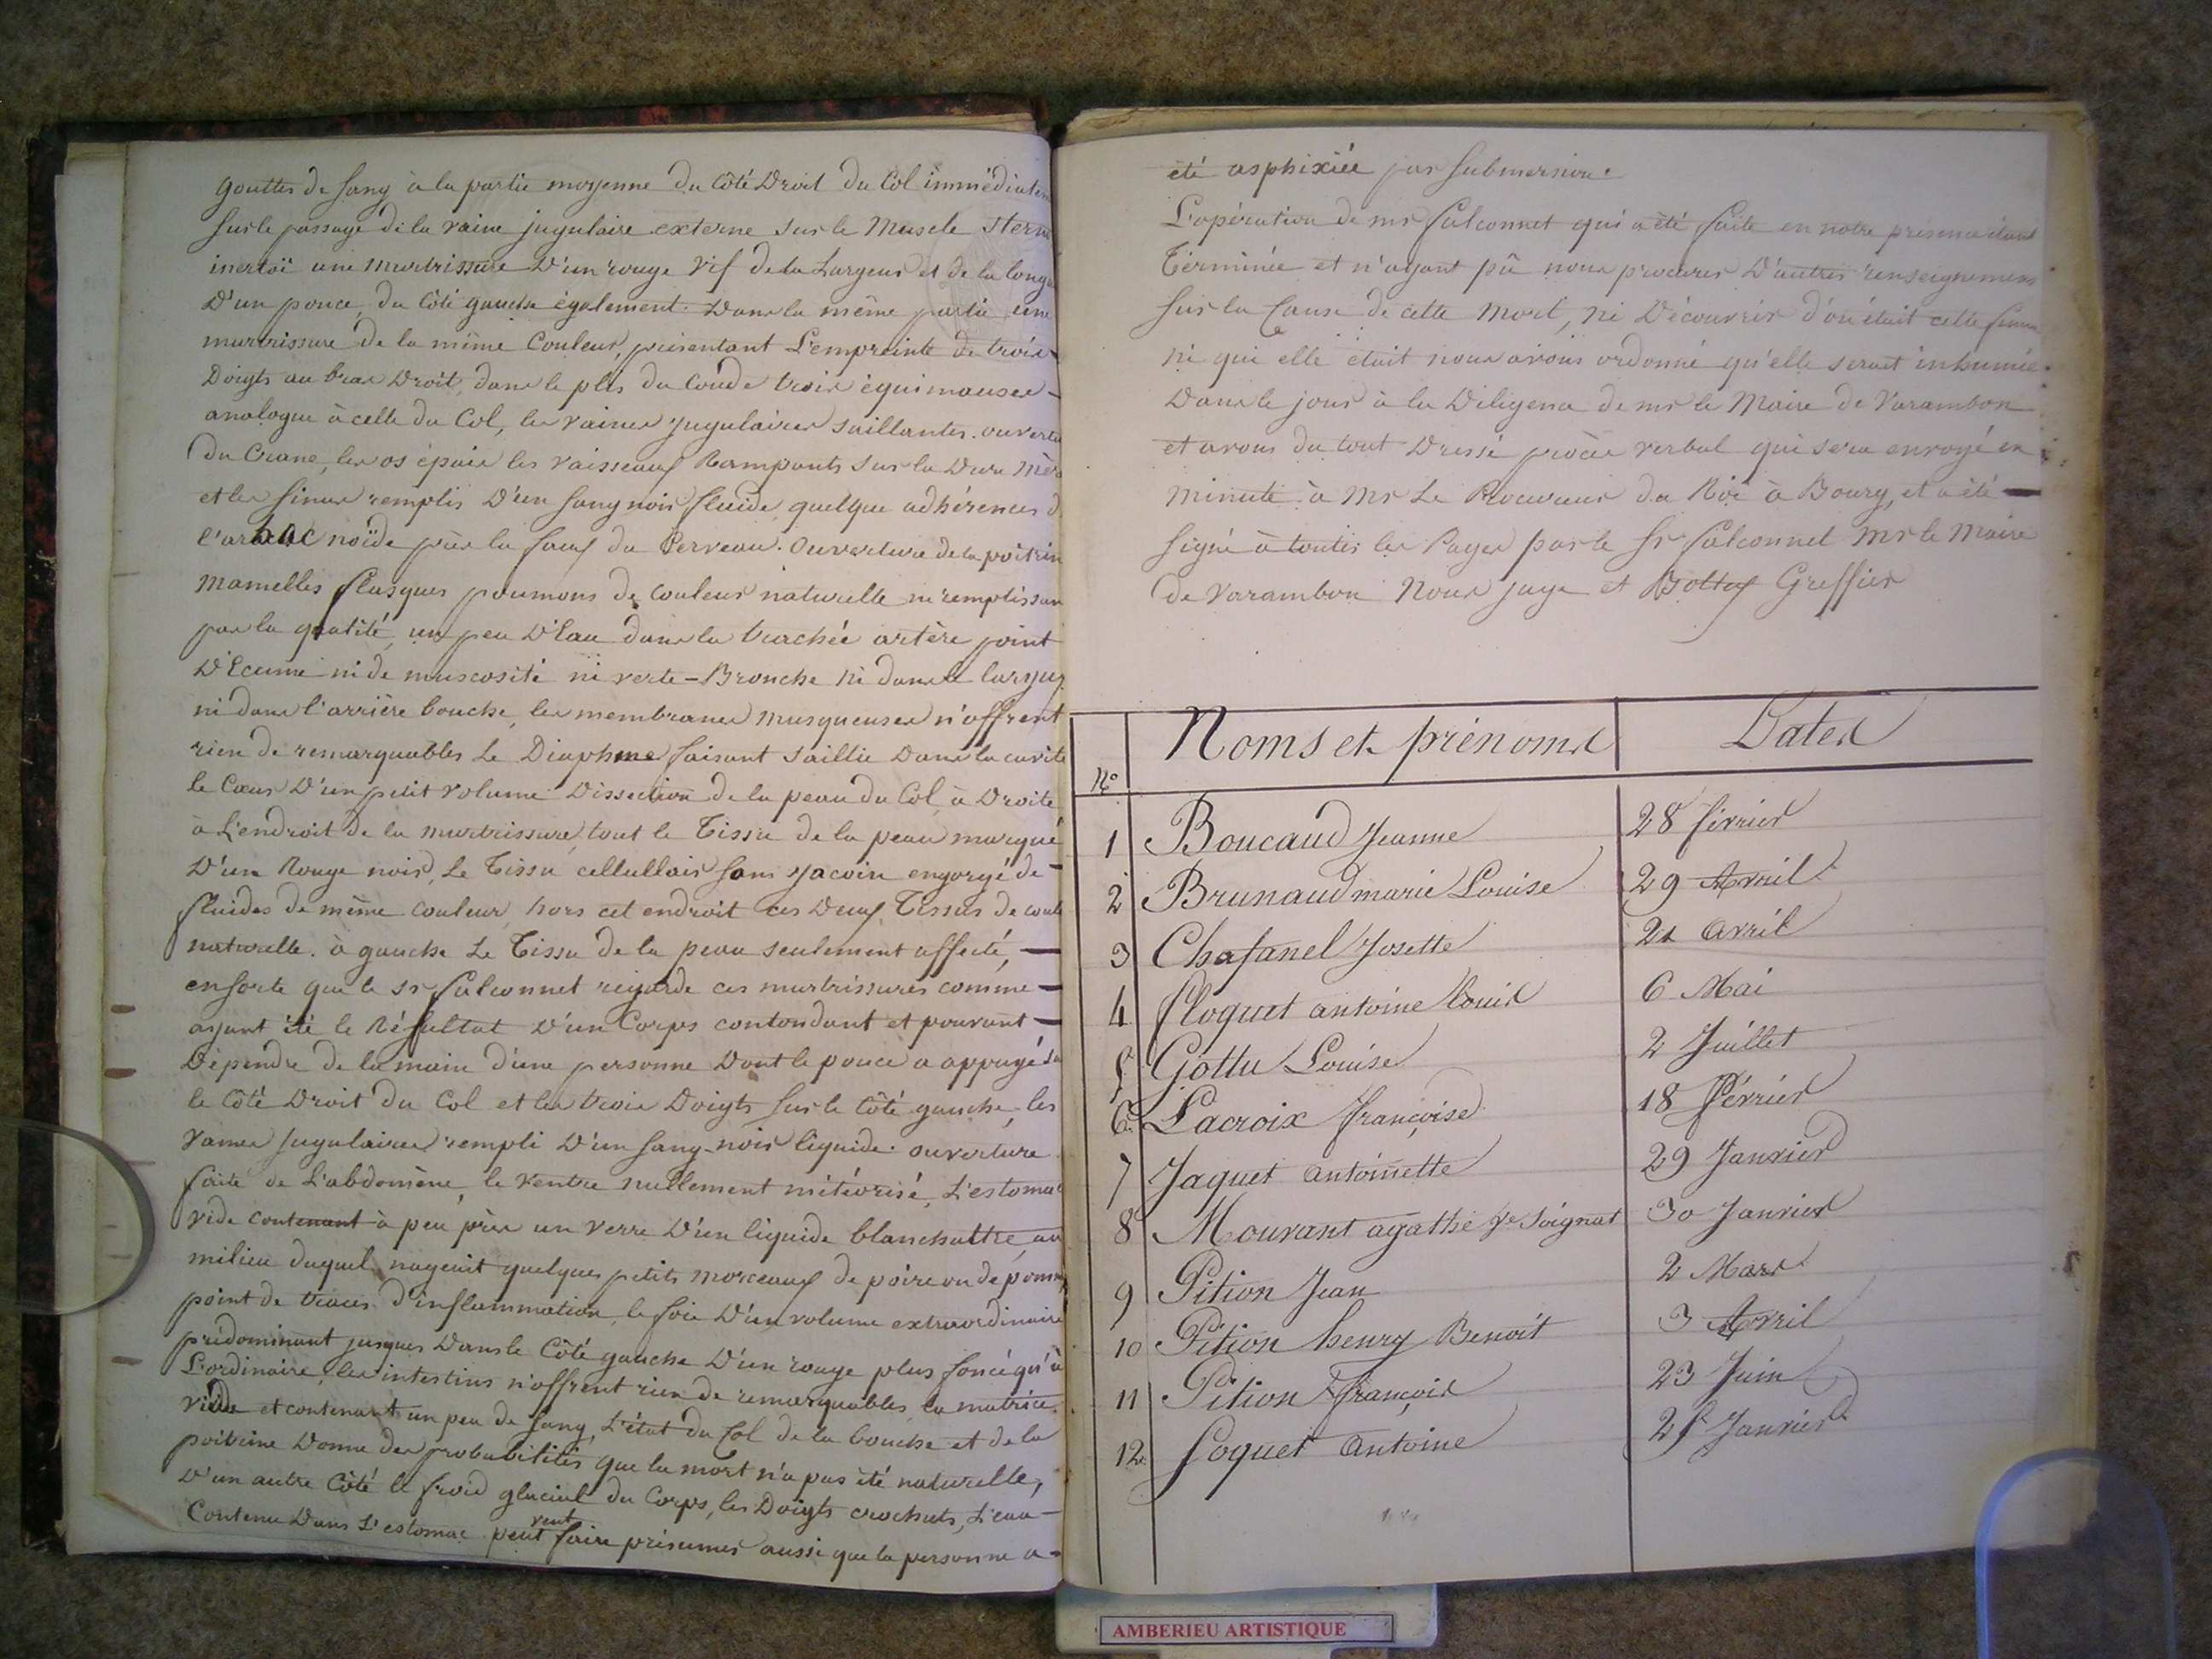 Gouttes de sang à la partie moyenne du Côté Droit du Col immédiatem
sur le passage de la vaine jugulaire externe sur le Muscle sterno
une murtrissure D'un rouge vif de la Largeur et de la long
D'un pouce, du Côté gauche également. Dans la même partie une
murtrissure de la même Couleur, présentant L'empreinte de trois
Doigts au bras Droit, dans le plis du Coude trois équimauses
analogue à celle du Col, les vaines jugulaires saillantes. ouvertu
du Crane, les os épais les vaisseaux Rampants sur la Dure Mère
et les sinus remplis D'un sang noir fluide, quelque adhérences d
l'aracnoïde près la faux du Cerveau. Ouverture de la poitrin
Mamelles flasques poumons de Couleur naturelle ne remplissan
pas la un peu D'Eau dans la trachée artère point
D'Ecume ni de muscosité ni Bronche ni dans le larynx
ni dans l'arrière bouche, les membranes musqueuses n'offrent
rien de remarquables Le faisant saillie Dans la cavité
le Cœur D'un petit volume Dissection de la peau du Col à Droite
à L'endroit de la murtrissure, tout le Tissu de la peau marqué
D'un Rouge noir, Le Tissu cellullair engorgé de
fluides de même couleur, hors cet endroit ces Deux Tissus de coule
naturelle. à gauche Le Tissu de la peau seulement affecté,
ensorte que le sr falconnet regarde ces murtrissures comme
ayant été le Résultat D'un Corps contondant et pouvant
Dépendre de la main d'une personne Dont le pouce a appuyé su
le Côté Droit du Col et les trois Doigts sur le Côté gauche, les
jugulaires rempli D'un sang noir liquide. ouverture
faite de L'abdomène, le Ventre nullement météorisé, L'estomac
vide contenant à peu près un verre D'un liquide blanchattre, au
milieu duquel nageait quelques petits morceaux de poire ou de pomme
point de traces D'inflammation, le foie D'un volume extraordinaire
prédominant jusques Dans le Côté gauche D'un rouge plus foncé qu'à
L'ordinaire, les intestins n'offrent rien de remarquables, la matrice
vide et contenant un peu de sang, L'état du Col de la bouche et de la
poitrine Donne des probabilités que la mort n'a pas été naturelle,
D'un autre Côté le froid glacial du Corps, les Doigts crochuts, L'eau
vent
Contenu Dans L'estomac peut faire présumer aussi que la personne a
été asphixiée par submersion.
L'opération de mr falconnet qui a été faite en notre présence étant
Terminée et n'ayant pû nous procurer D'autres renseignemens
Sur la Cause de cette Mort, ni Découvrir d'où était cette femme
ni qui elle était nous avons ordonné qu'elle serait inhumée
Dans le jour à la Diligence de mr le Maire de Varambon
et avons du tout Dressé procès verbal qui sera envoyé en
minute à Mr Le Procureur du Roi à Bourg, et a été
signé à toutes les Pages par le Sr falconnet Mr le Maire
de Varambon Nous juge et Bottex Greffier
No Noms et prénoms Dates
1 Boucaud Jeanne 28 février
2 Brunaud marie Louise 29 Avril
3 Chafanel Josette 21 avril
4 floquet antoine Louis 6 Mai
5 Gottu Louise 2 Juillet
6 Lacroix françoise 18 février
7 Jaquet antoinette 29 Janvier
8 Mourant agathe ve Soignat 30 Janvier
9 Pition Jean 2 Mars
10 Pition henry Benoit 3 Avril
11 Pition françois 23 Juin
12 foquet antoine 25 Janvier
AMBERIEU ARTISTIQUE